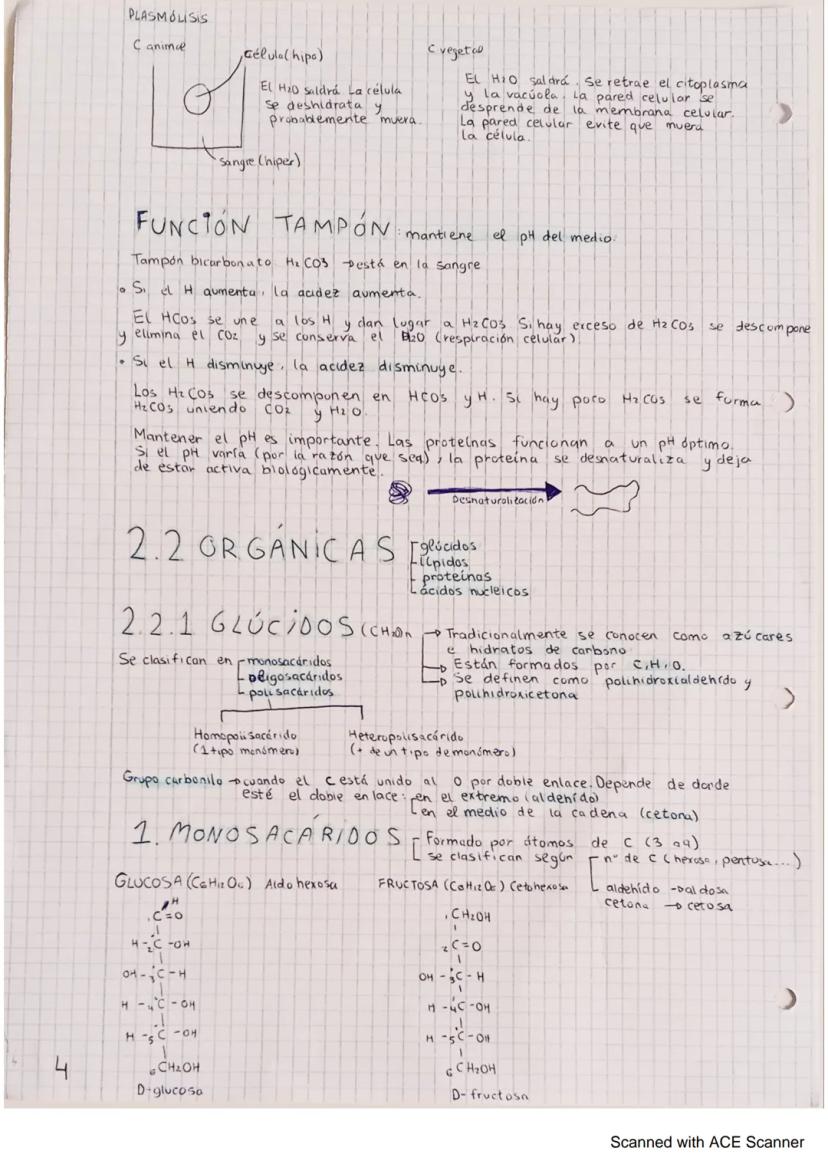 PLASMÓLISIS
C animal
célula (hipo)
El H2O saldrá. La célula
se deshidrata y
probablemente muera.
sangre (hiper)
C vegetal
El H2O saldrá. Se retrae el citoplasma
y la vacuola. La pared celular se
desprende de la membrana celular.
La pared celular evite que muera
la célula.
FUNCIÓN TAMPÓN: mantiene el pH del medio.
Tampón bicarbonato H2CO3 → está en la sangre
• Si el H aumenta, la acidez aumenta.
El HCO3 se une a los H y dan lugar a H2CO3 Si hay exceso de H2CO3 se descompone
y elimina el CO2 y se conserva el H2O (respiración celular).
• Si el H disminuye, la acidez disminuye.
Los H2CO3 se descomponen en HCO3 y H. Si hay poco H2CO3 se forma
H2CO3 uniendo CO2 y H2O.
Mantener el pH es importante. Las proteínas funcionan a un pH óptimo.
Si el pH varía (por la razón que sea), la proteína se desnaturaliza y deja
de estar activa biológicamente.
Desnaturalización
2.2 ORGÁNICAS
glúcidos
lípidos
proteínas
ácidos nucleicos
2.2.1 GLÚCIDOS (CH2O)n
→ Tradicionalmente se conocen como azúcares
e hidratos de carbono
→ Están formados por C, H, O.
→ Se definen como polihidroxialdehído y
polihidroxicetona
Se clasifican en
monosacáridos
oligosacáridos
polisacáridos
Homopolisacárido
(1 tipo monómero)
Heteropolisacárido
(+ de un tipo de monómero)
Grupo carbonilo → cuando el C está unido al O por doble enlace. Depende de donde
esté el doble enlace:
en el extremo (aldehído)
en el medio de la cadena (cetona)
1. MONOSACÁRIDOS
Formado por átomos de C (3 a 9)
se clasifican según
nº de C (hexosa, pentosa...)
aldehído → aldosa
cetona → cetosa
GLUCOSA (C6H12O6) Aldohexosa
H
1C=O
H-2C-OH
OH-3C-H
H-4C-OH
H-5C-OH
6CH2OH
D-glucosa
FRUCTOSA (C6H12O6) Cetohexosa
1CH2OH
2C=O
OH-3C-H
H-4C-OH
H-5C-OH
6CH2OH
D-fructosa
4
Scanned with ACE Scanner